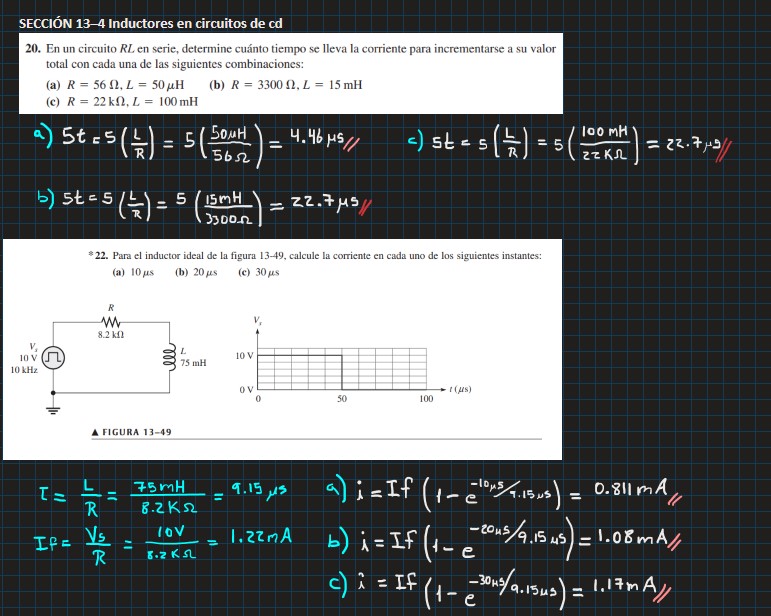 SECCIÓN 13–4 Inductores en circuitos de cd
20. En un circuito RL en serie, determine cuánto tiempo se lleva la corriente para incrementarse a su valor
total con cada una de las siguientes combinaciones:
(a) R = 56 Ω, L = 50 μH (b) R = 3300 Ω, L = 15 mH
(c) R = 22 kΩ, L = 100 mH
a) 5t = 5 (L/R) = 5 (50μH/56Ω) = 4.46 μs //
c) 5t = 5 (L/R) = 5 (100 mH/22 KΩ) = 22.7 μs //
b) 5t = 5 (L/R) = 5 (15mH/3300Ω) = 22.7 μs //
*22. Para el inductor ideal de la figura 13-49, calcule la corriente en cada uno de los siguientes instantes:
(a) 10 μs (b) 20 μs (c) 30 μs
R
8.2 kΩ
Vs
10 V
10 kHz
L
75 mH
Vs
10 V
0 V
0 50 100
t (μs)
▲ FIGURA 13–49
τ = L/R = 75mH/8.2KΩ = 9.15 μs
If = Vs/R = 10V/8.2KΩ = 1.22mA
a) i = If (1 - e^-10μs/9.15μs) = 0.811 mA //
b) i = If (1 - e^-20μs/9.15μs) = 1.08mA //
c) i = If (1 - e^-30μs/9.15μs) = 1.17mA //